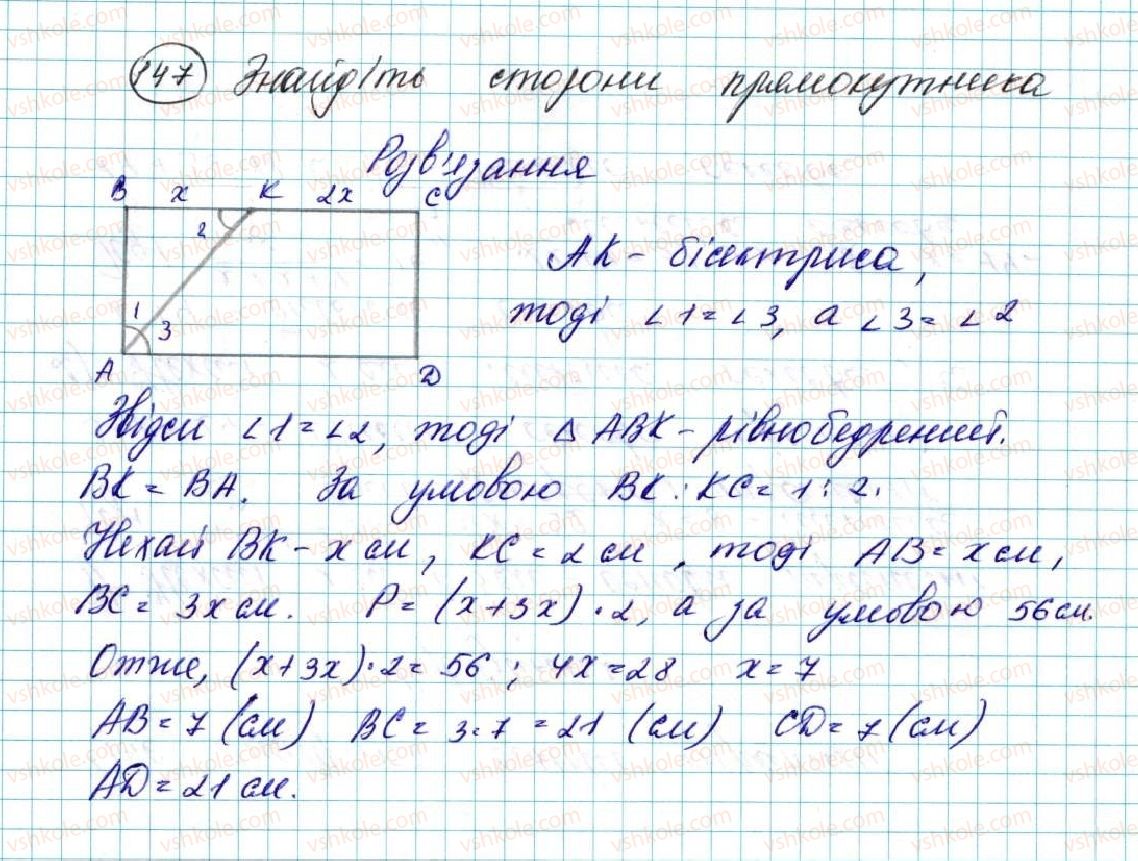 147 Знайдіть сторони прямокутника
Розв'язання
B x K 2x C
2
1
3
A D
AK - бісектриса,
тоді ∠1=∠3, а ∠3=∠2
Звідси ∠1=∠2, тоді △ ABK - рівнобедрений.
BK = BA. За умовою BK : KC = 1 : 2.
Нехай BK - x см, KC = 2 см, тоді AB = x см,
BC = 3x см. P = (x+3x)·2, а за умовою 56 см.
Отже, (x+3x)·2=56; 4x=28 x=7
AB=7 (см) BC=3·7=21 (см) CD=7 (см)
AD=21 см.
vshkole.com